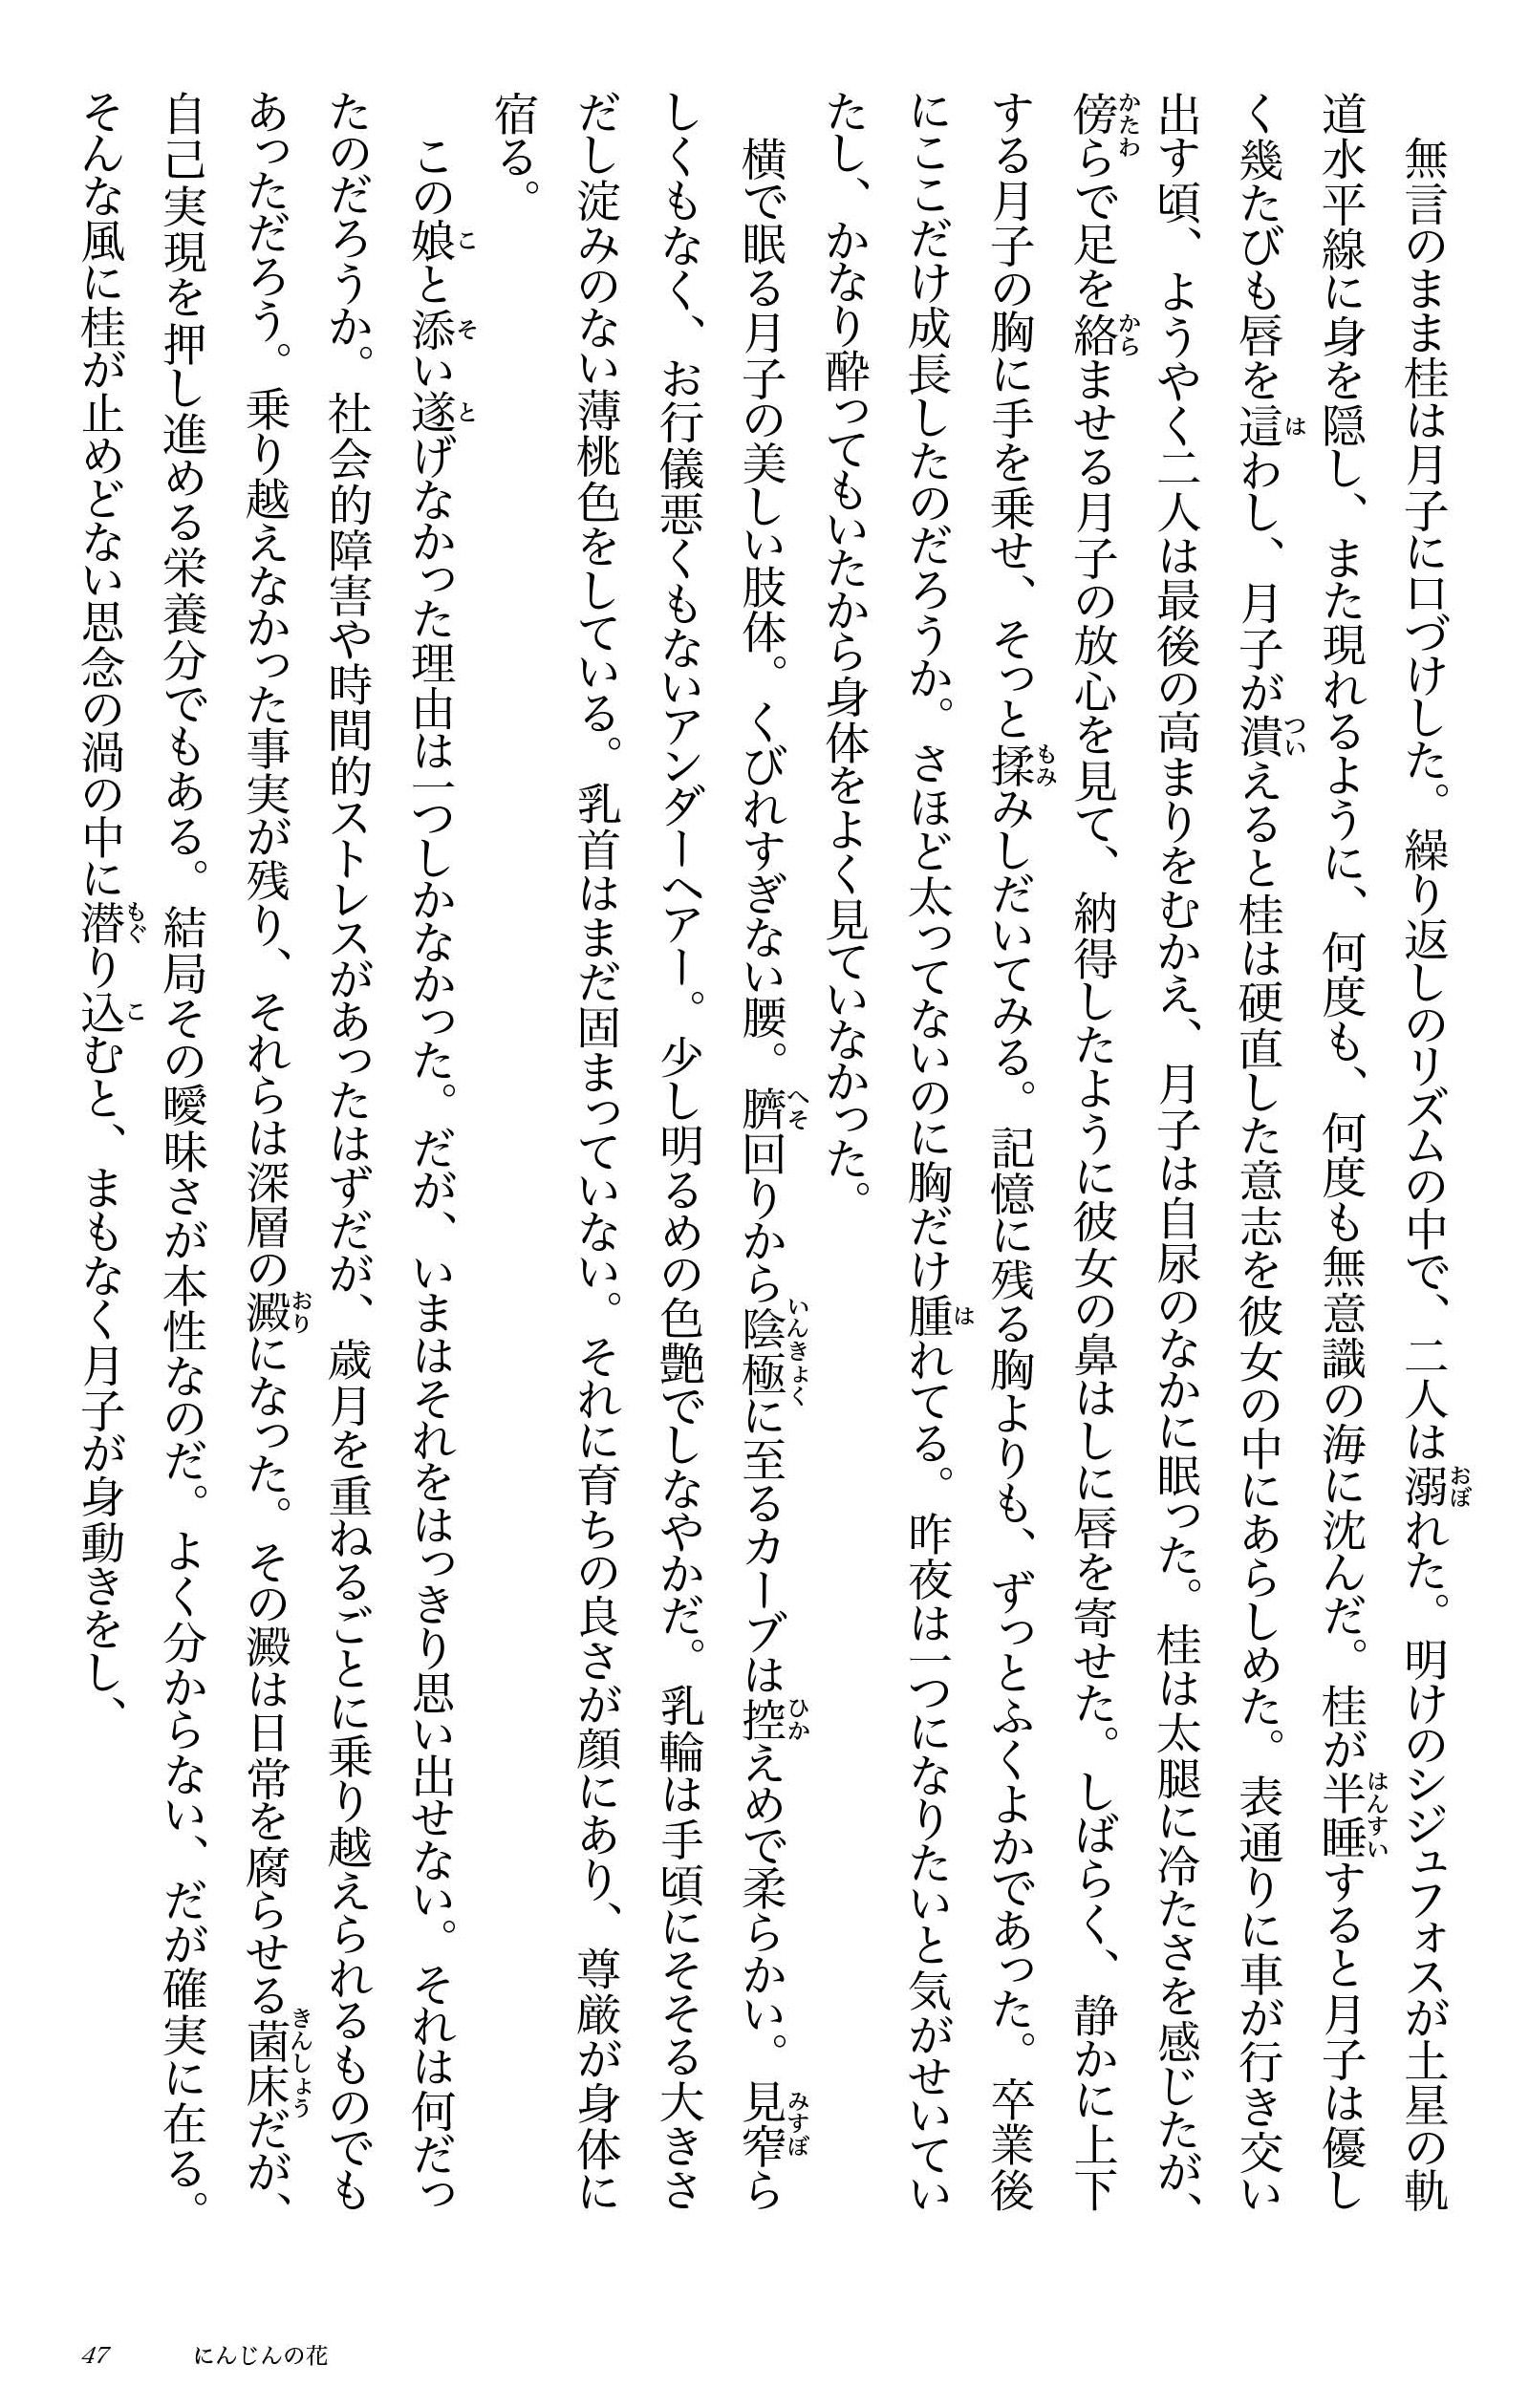 無言のまま桂は月子に口づけした。繰り返しのリズムの中で、二人は溺れた。明けのシジュフォスが土星の軌
道水平線に身を隠し、また現れるように、何度も、何度も無意識の海に沈んだ。桂が半睡すると月子は優し
く幾たびも唇を這わし、月子が潰えると桂は硬直した意志を彼女の中にあらしめた。表通りに車が行き交い
出す頃、ようやく二人は最後の高まりをむかえ、月子は自尿のなかに眠った。桂は太腿に冷たさを感じたが、
傍らで足を絡ませる月子の放心を見て、納得したように彼女の鼻はしに唇を寄せた。しばらく、静かに上下
する月子の胸に手を乗せ、そっと揉みしだいてみる。記憶に残る胸よりも、ずっとふくよかであった。卒業後
にここだけ成長したのだろうか。さほど太ってないのに胸だけ腫れてる。昨夜は一つになりたいと気がせいてい
たし、かなり酔ってもいたから身体をよく見ていなかった。
横で眠る月子の美しい肢体。くびれすぎない腰。臍回りから陰極に至るカーブは控えめで柔らかい。見窄ら
しくもなく、お行儀悪くもないアンダーヘアー。少し明るめの色艶でしなやかだ。乳輪は手頃にそそる大きさ
だし淀みのない薄桃色をしている。乳首はまだ固まっていない。それに育ちの良さが顔にあり、尊厳が身体に
宿る。
この娘と添い遂げなかった理由は一つしかなかった。だが、いまはそれをはっきり思い出せない。それは何だっ
たのだろうか。社会的障害や時間的ストレスがあったはずだが、歳月を重ねるごとに乗り越えられるものでも
あっただろう。乗り越えなかった事実が残り、それらは深層の澱になった。その澱は日常を腐らせる菌床だが、
自己実現を押し進める栄養分でもある。結局その曖昧さが本性なのだ。よく分からない、だが確実に在る。
そんな風に桂が止めどない思念の渦の中に潜り込むと、まもなく月子が身動きをし、
47 にんじんの花